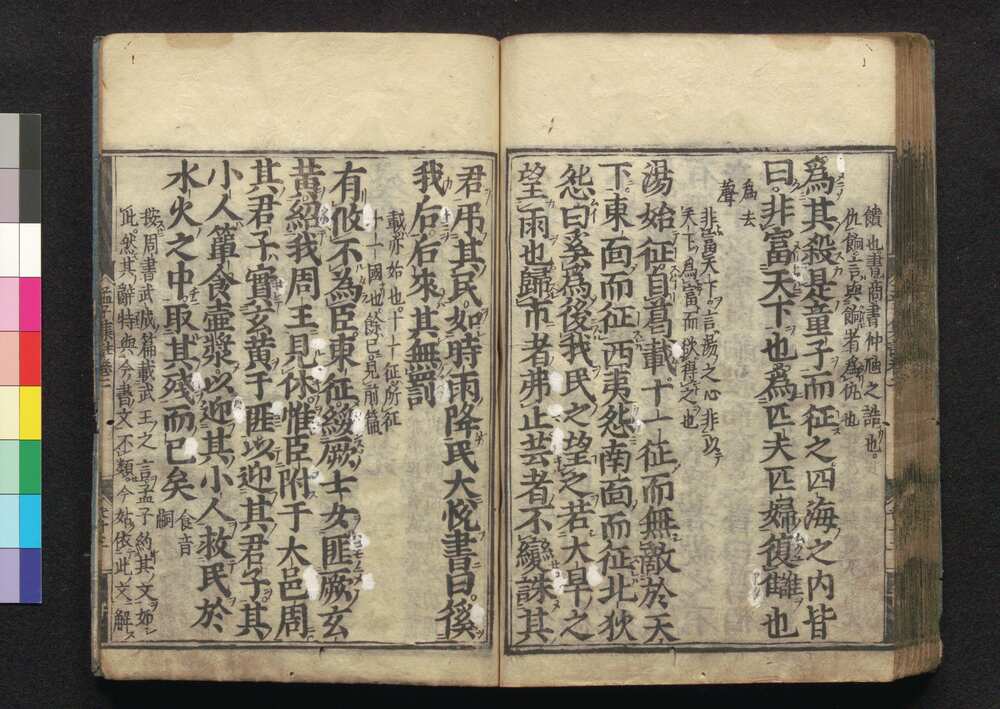 饋也書商書仲虺之誥也
仇餉言與餉者爲仇也
爲其殺是童子而征之四海之内皆
曰非富天下也爲匹夫匹婦復讎也
爲去
聲
非富天下言湯之心非以
天下爲富而欲得之也
湯始征自葛載十一征而無敵於天
下東面而征西夷怨南面而征北狄
怨曰奚爲後我民之望之若大旱之
望雨也歸市者弗止芸者不變誅其
君弔其民如時雨降民大悅書曰徯
我后后來其無罰
載亦始也十一征所征
十一國也餘已見前篇
有攸不為臣東征綏厥士女匪厥玄
黃紹我周王見休惟臣附于大邑周
其君子實玄黃于匪以迎其君子其
小人簞食壺漿以迎其小人救民於
水火之中取其殘而已矣
食音
嗣
按周書武成篇載武王之言孟子約其文如
此然其辭特與今書文不類今姑依此文解
孟子集註卷三